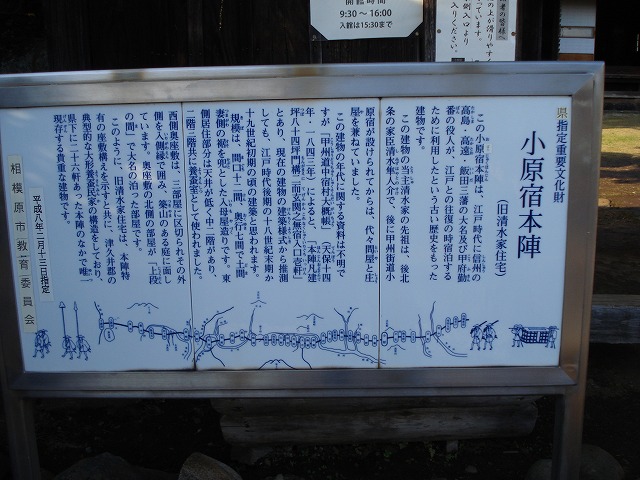 開館時間
9:30～16:00
入館は15:30まで
県指定重要文化財
小原宿本陣
（旧清水家住宅）
この小原宿本陣は、江戸時代に信州の
高島・高遠・飯田三藩の大名及び甲府勤
番の役人が、江戸との往復の時宿泊する
ために利用したという古い歴史をもった
建物です。
この建物の当主清水家の先祖は、後北
条の家臣清水隼人介で、後に甲州街道小
原宿が設けられてからは、代々問屋と庄
屋を兼ねていました。
この建物の年代に関する資料は不明で
すが「甲州道中宿村大概帳」（天保十四
年・一八四三年）によると、「本陣凡建
坪八十四坪門構三而玄関無宿入口壱軒」
とあり、現在の建物の建築様式から推測
しても、江戸時代後期の十八世紀末期か
十九世紀初期の頃の建築と思われます。
規模は、間口十二間、奥行七間で土間
妻側の裾を兜とした入母屋造りです。東
側居住部分は天井が低く中二階があり、
二階三階共に養蚕室として使われました。
西側奥座敷は、三部屋に区切られその外
側を入側縁で囲み、築山のある庭に面し
ています。奥座敷の北側の部屋が「上段
の間」で大名の泊った部屋です。
このように、旧清水家住宅は、本陣特
有の座敷構えを示すと共に、津久井郡の
典型的な大形養蚕民家の構造をしており、
県下に二十六軒あった本陣のなかで唯一
現存する貴重な建物です。
平成八年二月十三日指定
相模原市教育委員会